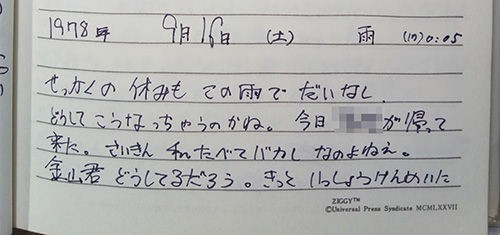 1978年 9月16日 (土) 雨 (M)0:05
せっかくの 休みも この雨で だいなし.
どうして こうなっちゃうのかね。 今日 が帰って
来た。さいきん 私たべてバカし なのよねえ。
金山君 どうしてるだろう。きっと いっしょうけんめいに
ZIGGY™
©Universal Press Syndicate MCMLXXVII